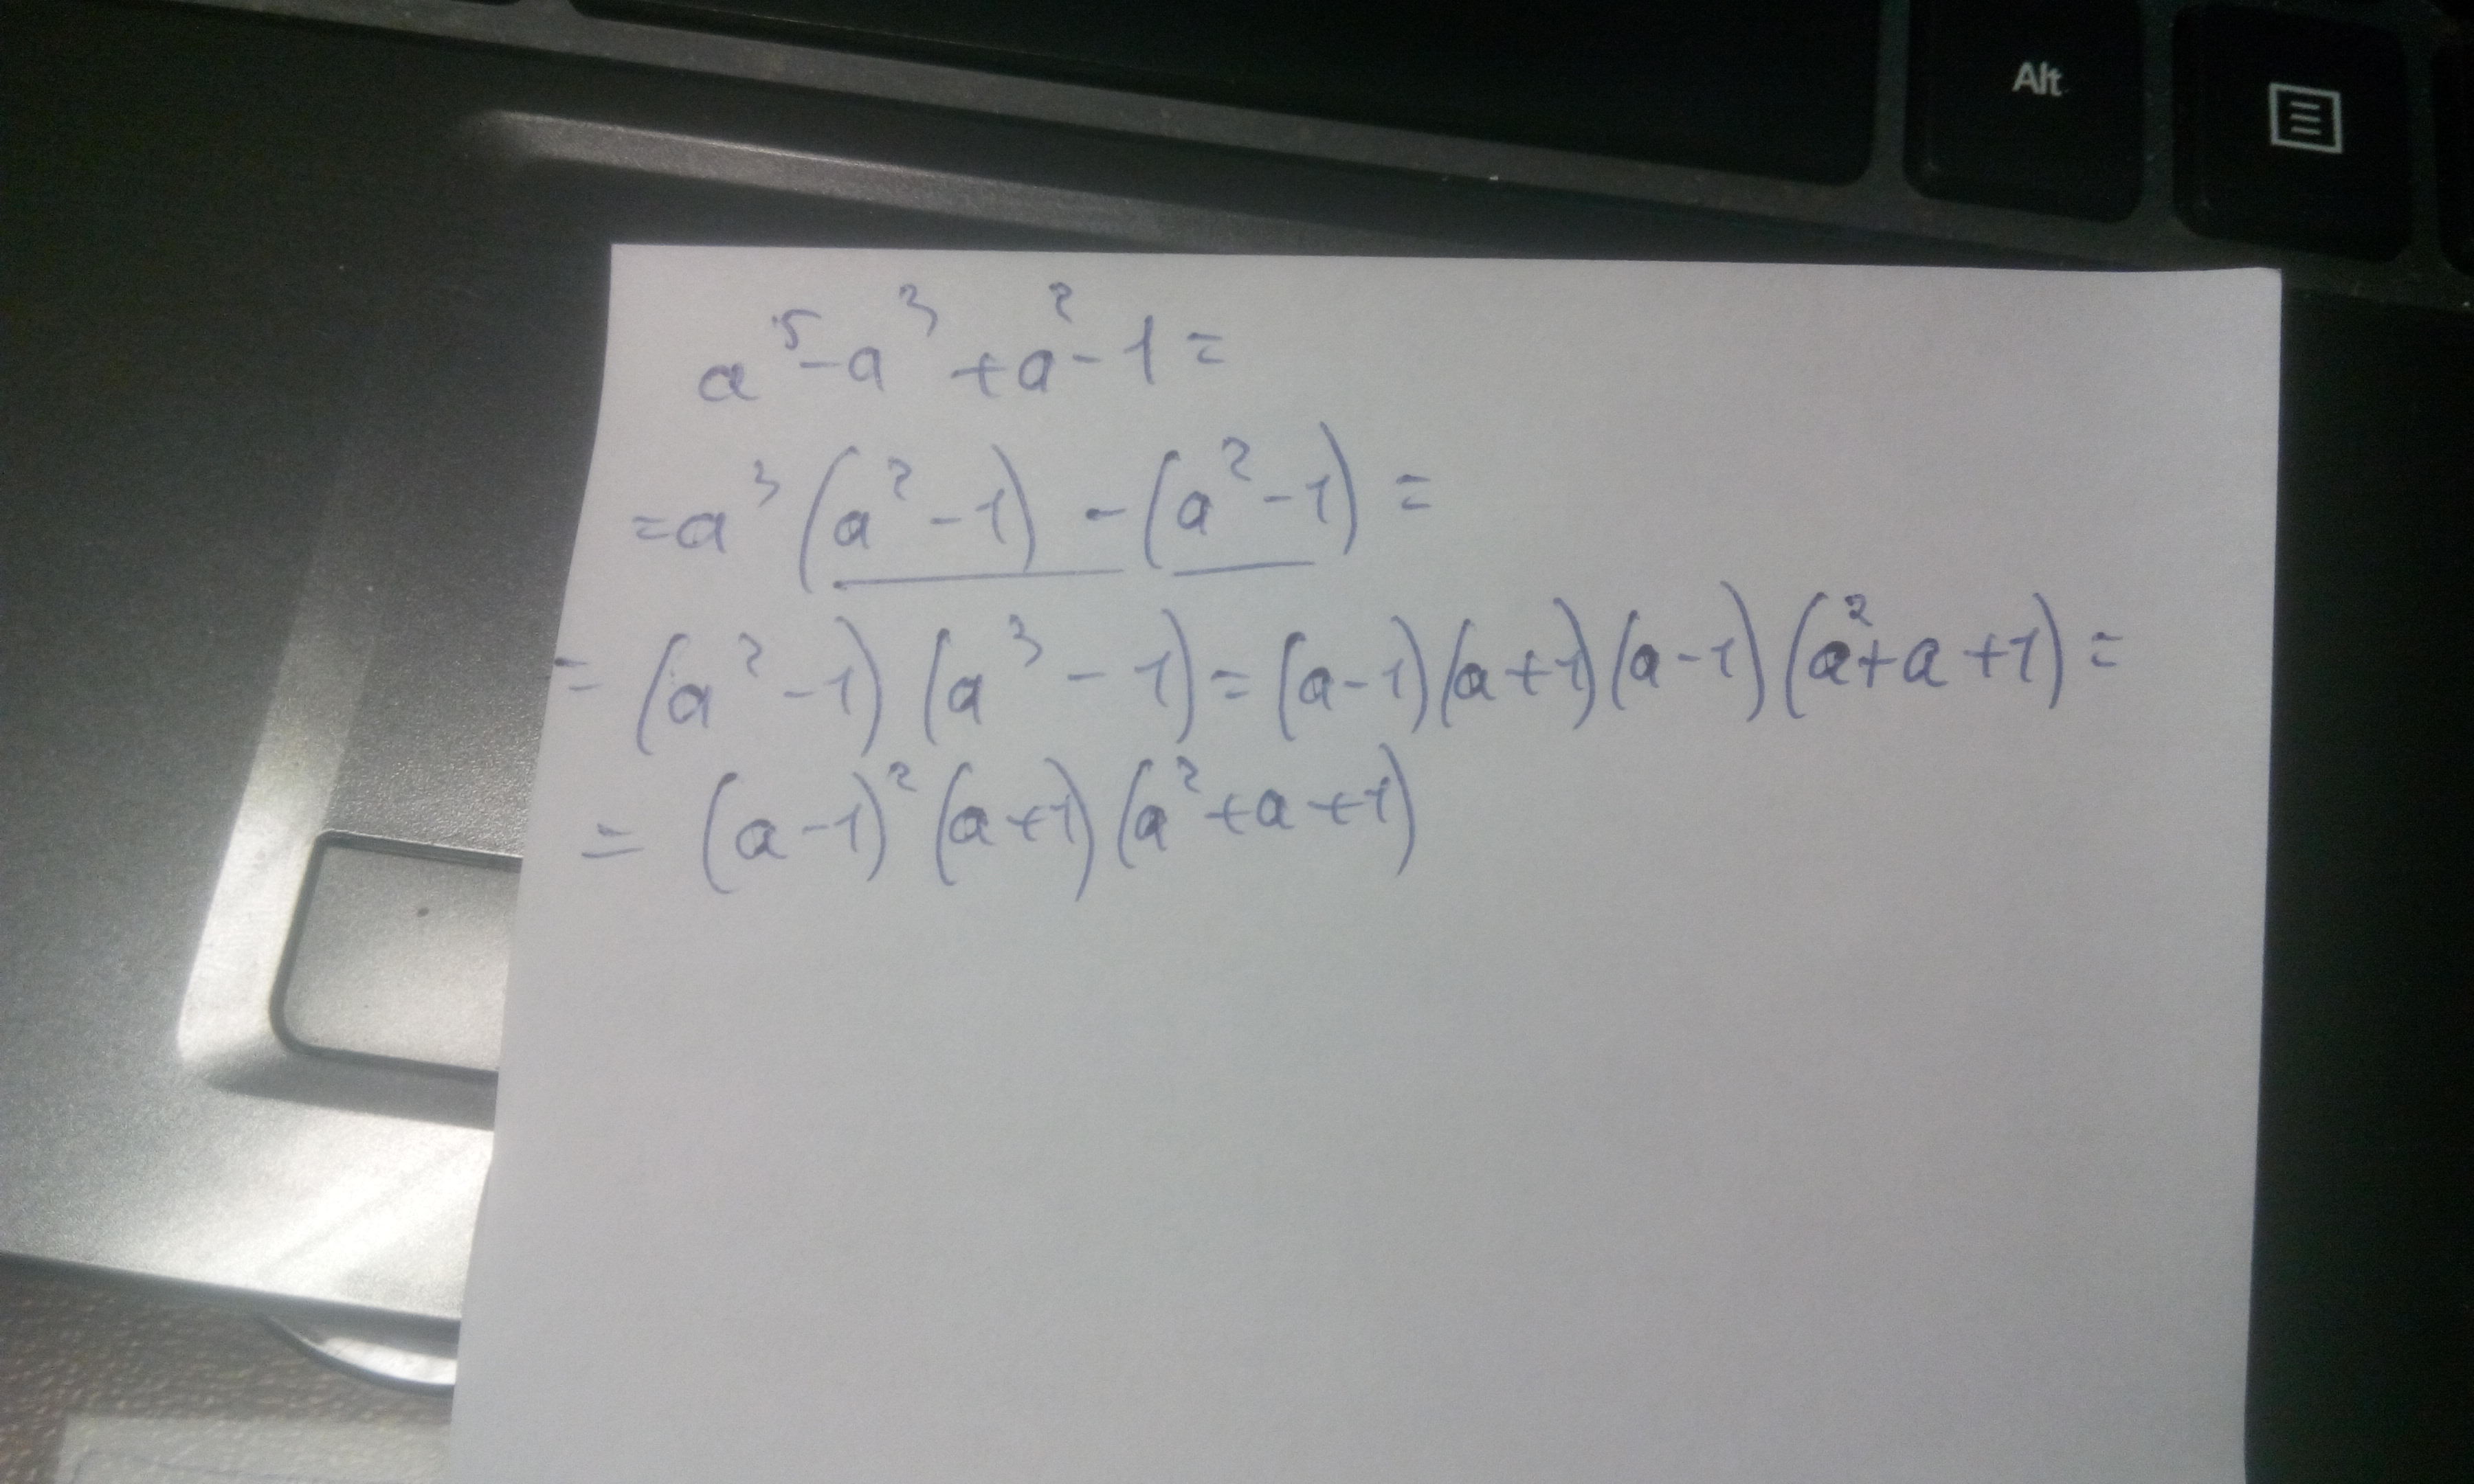 Alt
a⁵-a³+a²-1=
=a³(a²-1)-(a²-1)=
=(a²-1)(a³-1)=(a-1)(a+1)(a-1)(a²+a+1)=
=(a-1)²(a+1)(a²+a+1)